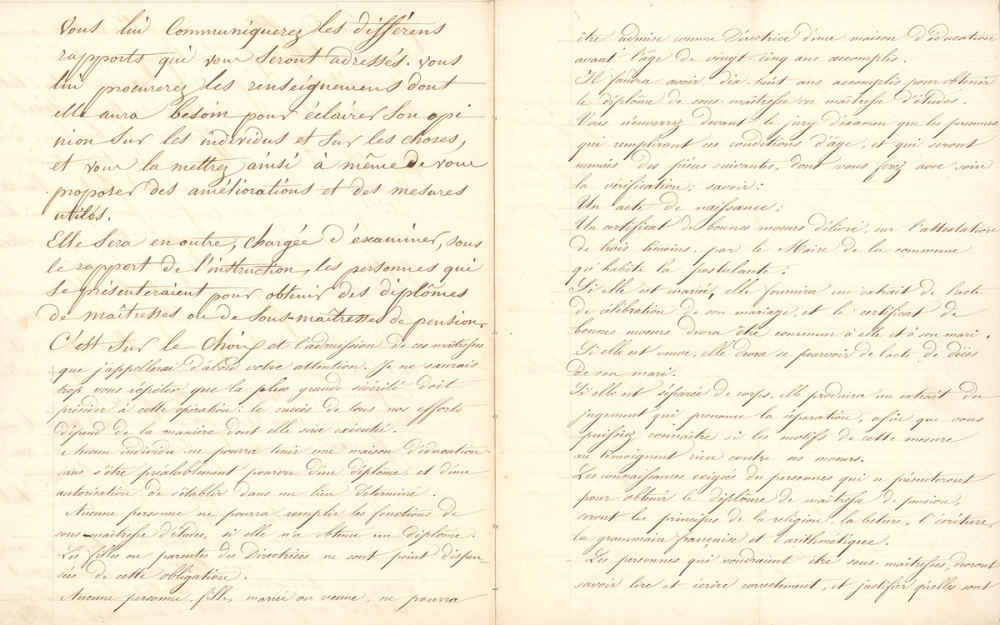 Vous lui Communiquerez les différens
rapports qui vous Seront adressés. vous
lui procurerez les renseignemens dont
elle aura besoin pour éclairer Son opi
nion Sur les individus et Sur les choses,
et vous la mettrez ainsi à même de vous
proposer des améliorations et des mesures
utiles.
Elle Sera en outre, chargée d'examiner, sous
le rapport de l'instruction, les personnes qui
Se présenteraient pour obtenir des diplômes
de maîtresses ou de Sous-maîtresses de pension.
C'est Sur le choix et l'admission de ces maîtresses
que j'appellerai d'abord votre attention. Je ne saurais
trop vous répéter que la plus grand sévérité doit
présider à cette opération: le succès de tous nos efforts
dépend de la manière dont elle sera exécutée.
Aucun individu ne pourra tenir une maison d'éducation
sans s'être préalablement pourvu d'un diplôme et d'une
autorisation de s'établir dans un lieu déterminé.
Aucune personne ne pourra remplir les fonctions de
sous-maîtresse d'études, si elle n'a obtenu un Diplôme.
Les filles ou parentes des Directrices ne sont point dispen-
sées de cette obligation.
Aucune personne, fille, mariée ou veuve, ne pourra
être admise comme Directrice d'une maison d'éducation
avant l'âge de vingt-cinq ans accomplis.
Il faudra avoir dix huit ans accomplis pour obtenir
le diplôme de sous-maîtresse ou maîtresse d'études.
Vous n'enverrez devant le jury d'examen que les personnes
qui rempliront ces conditions d'âge, et qui seront
munies des pièces suivantes, dont vous ferez avec soin
la vérification; savoir:
Un acte de naissance;
Un certificat de bonnes mœurs délivré, sur l'attestation
de trois témoins, par le Maire de la commune
qu'habite la postulante;
Si elle est mariée, elle fournira un extrait de l'acte
de célébration de son mariage, et le certificat de
bonnes mœurs devra être commun à elle et à son mari.
Si elle est veuve, elle devra se pourvoir de l'acte de décès
de son mari.
Si elle est séparée de corps, elle produira un extrait du
jugement qui prononce la séparation, afin que vous
puissiez connaître si les motifs de cette mesure
ne témoignent rien contre ses mœurs.
Les connaissances exigées des personnes qui se présenteront
pour obtenir le diplôme de maîtresse de pension,
seront les principes de la religion, la lecture, l'écriture,
la grammaire française et l'arithmétique.
Les personnes qui voudraient être sous-maîtresses, devront
savoir lire et écrire correctement, et justifier qu'elles sont